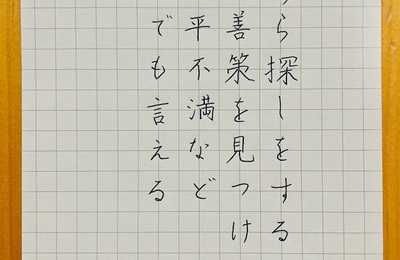 ら探しをする
善策を見つけ
平不満など
でも言える